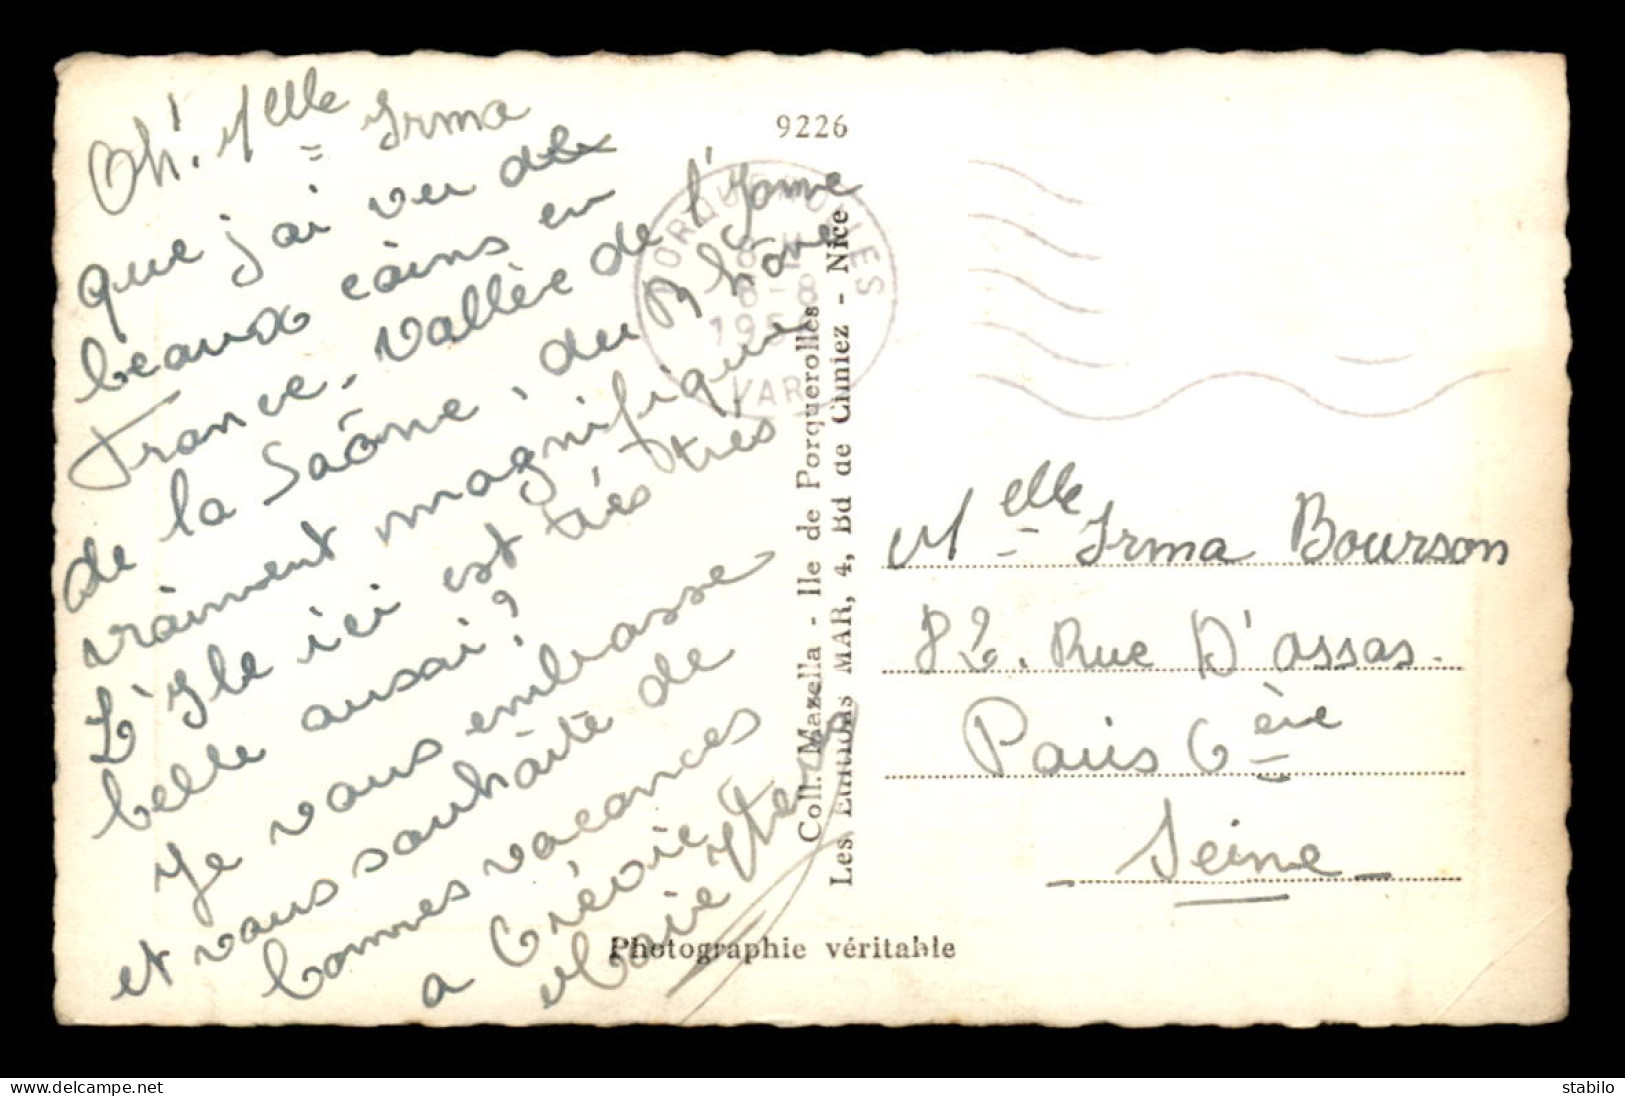 Oh! Melle Irma
que j'ai vu de
beaux coins en
France, Vallée de l'Yonne
de la Saône, du Rhône
vraiment magnifique
L'Isle ici est très très
belle aussi?
Je vous embrasse
et vous souhaite de
bonnes vacances
a
9226
PORQUEROLLES
VAR
Coll. Mazella - Ile de Porquerolles
Les Editions MAR, 4, Bd de Cimiez - Nice
Photographie véritable
Melle Irma Bourson
82. Rue D'assas.
Paris 6ère
Seine
delcampe.net
stabilo